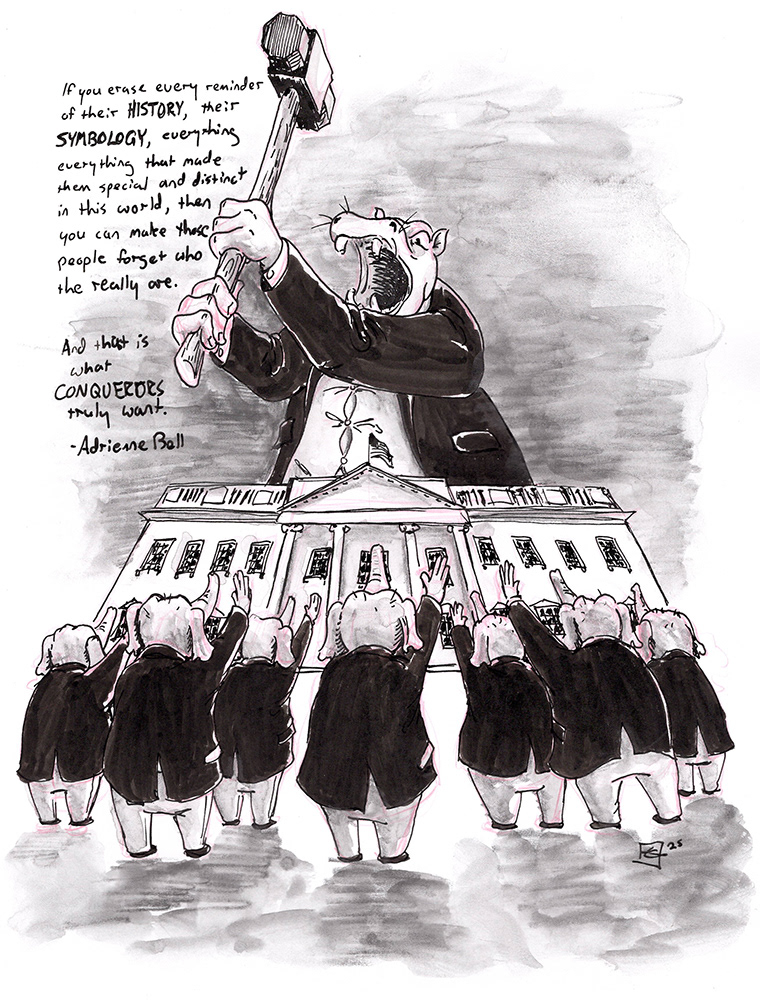 If you erase every reminder
of their HISTORY, their
SYMBOLOGY, everything
everything that made
them special and distinct
in this world, then
you can make those
people forget who
the really are.
And that is
what
CONQUERORS
truly want.
-Adrienne Bell
'25